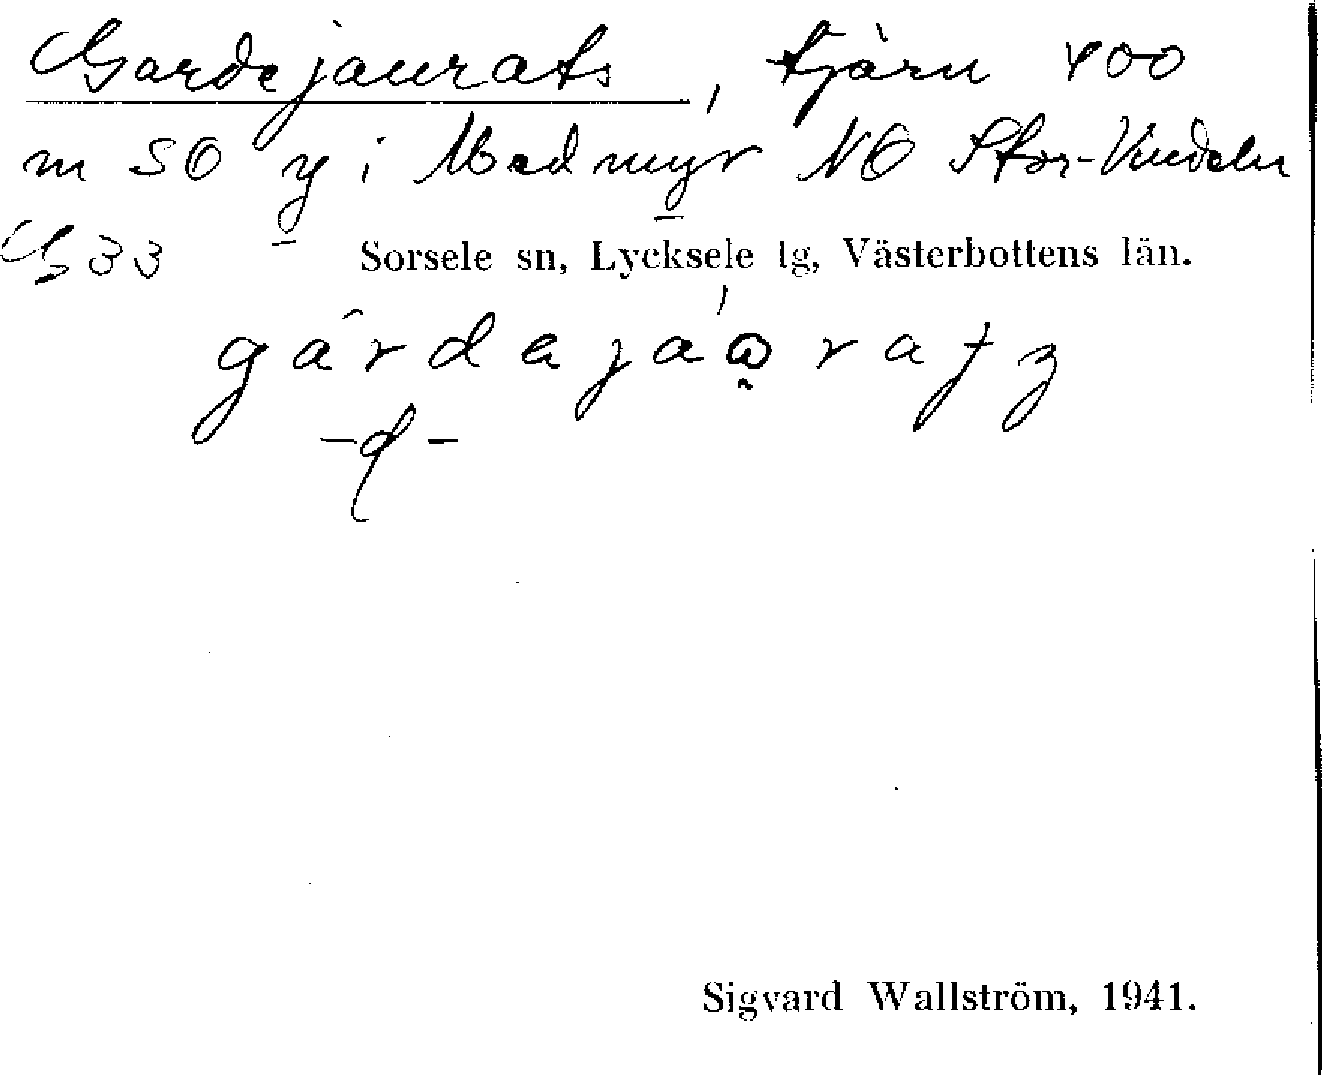 Gardejaurats, tjärn 400
m SO y i Med myr NO Stor-Vindeln
G 33 Sorsele sn, Lycksele lg, Västerbottens län.
gárdejaurats
-d-
Sigvard Wallström, 1941.